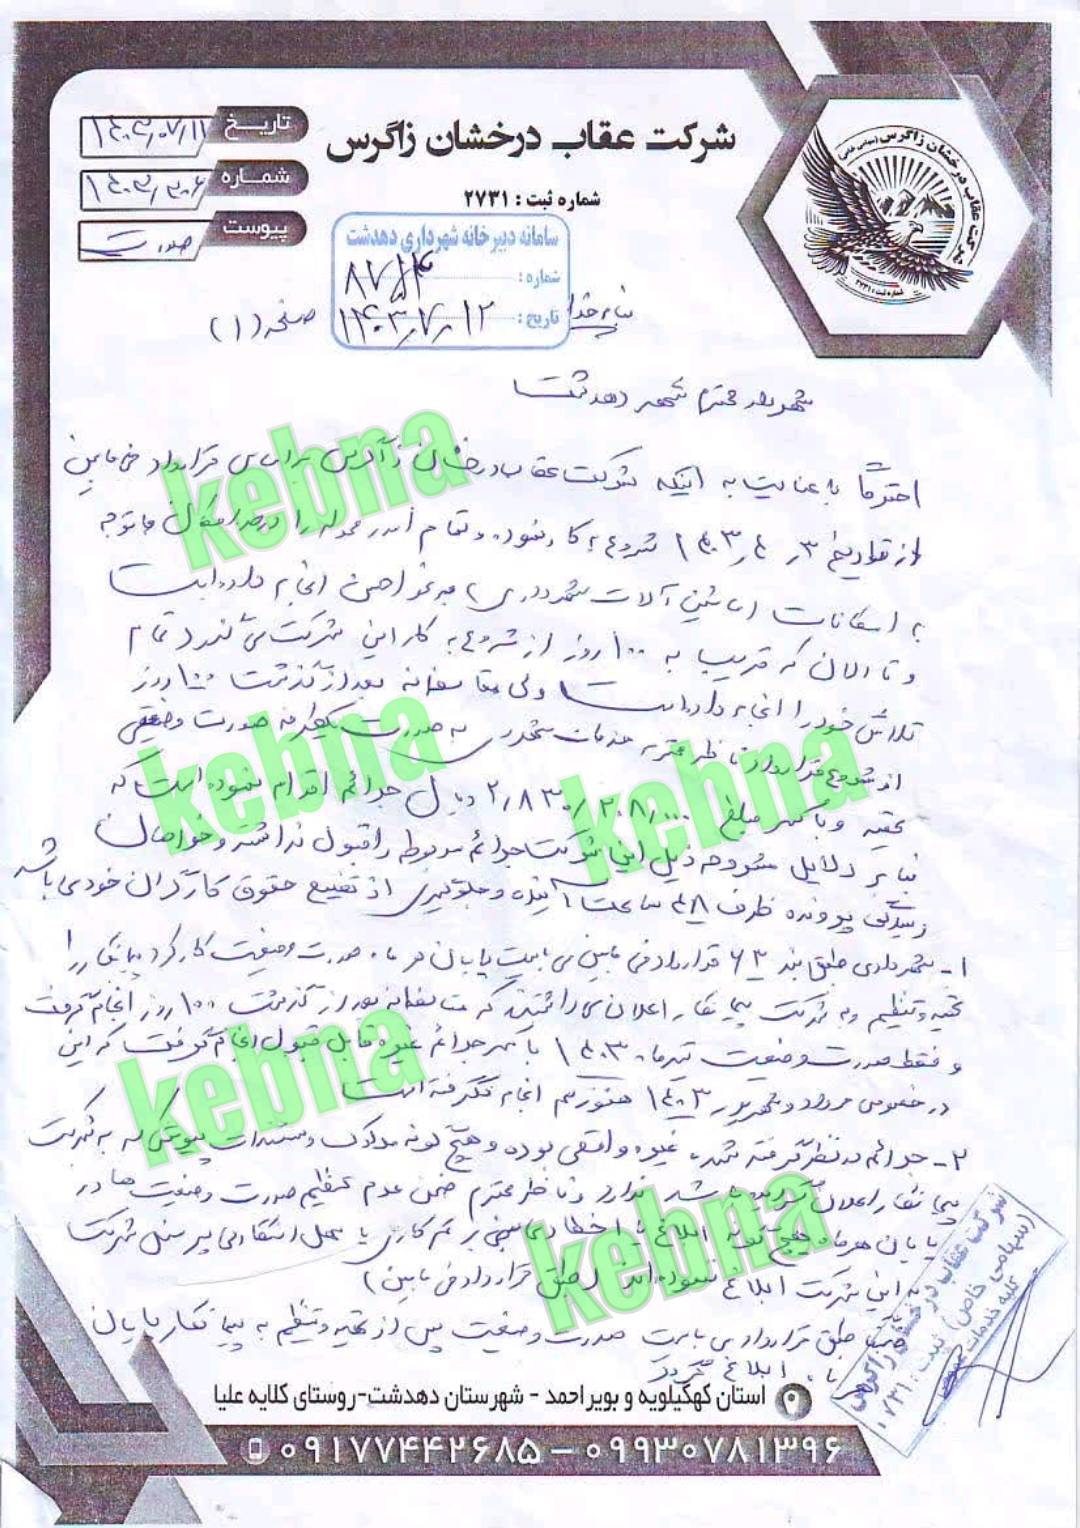 شرکت عقاب درخشان زاگرس
شماره ثبت : ۲۷۳۱
تاریخ ۱۴۰۳/۰۷/۱۱
شماره ۱۴۰۳/۳۰۶
پیوست
شرکت عقاب درخشان زاگرس (سهامی خاص)
شماره ثبت : ۲۷۳۱
سامانه دبیرخانه شهرداری دهدشت
شماره : ۸۷۵۴
تاریخ : ۱۴۰۳/۷/۱۲
بنام خدا
صفحه (۱)
شهردار محترم شهر دهدشت
احتراماً با عنایت به اینکه شرکت عقاب درخشان زاگرس براساس قرارداد فی مابین
از تاریخ ۱۴۰۳/۴/۳ شروع به کار نموده و تمام امور محوله را در حد امکان با توجه
به امکانات (ماشین آلات شهرداری) به نحو احسن انجام داده است
و تا الان که قریب به ۱۰۰ روز از شروع به کار این شرکت می گذرد تمام
تلاش خود را انجام داده است ولی متاسفانه بعد از گذشت ۱۰۰ روز
از شروع قرارداد ناظر محترم خدمات شهری به صورت یکطرفه صورت وضعیتی
تهیه و با کسر مبلغ ۲/۸۳۰/۲۰۸/۰۰۰ ریال جرائم اقدام نموده است که
بنا بر دلایل مشروحه ذیل این شرکت جرائم مربوطه را قبول نداشته و خواهان
رسیدگی پرونده ظرف ۴۸ ساعت آینده و جلوگیری از تضییع حقوق کارگران خود می باشد
۱- شهرداری طبق بند ۶۳ قرارداد فی مابین می بایست پایان هر ماه صورت وضعیت کارکرد پیمانکار را
تهیه و تنظیم و به شرکت پیمانکار اعلان می داشتند که متاسفانه بعد از گذشت ۱۰۰ روز انجام گرفت
و فقط صورت وضعیت تیرماه ۱۴۰۳ با کسر جرائم غیره قابل قبول انجام گرفت که این
در خصوص مرداد و شهریور ۱۴۰۳ هنوز هم انجام نگرفته است
۲- جرائم در نظر گرفته شده غیره واقعی بوده و هیچ گونه مدارک و مستندات پیوستی که به شرکت
پیمانکار اعلان گردیده باشد ندارد و ناظر محترم ضمن عدم تنظیم صورت وضعیت ها در
پایان هر ماه هیچ گونه ابلاغ یا اخطاریه مبنی بر کم کاری یا عمل انتقادی پرسنل شرکت
به این شرکت ابلاغ ننموده اند (طبق قرارداد فی مابین)
طبق قرارداد می بایست صورت وضعیت پس از تهیه و تنظیم به پیمانکار تا پایان
ماه ابلاغ گردد
شرکت عقاب درخشان زاگرس
(سهامی خاص) ثبت : ۲۷۳۱
کلیه خدمات عمومی
استان کهگیلویه و بویراحمد - شهرستان دهدشت-روستای کلایه علیا
۰۹۱۷۷۴۴۲۶۸۵ – ۰۹۹۳۰۷۸۱۳۹۶
kebna
kebna
kebna
kebna
kebna